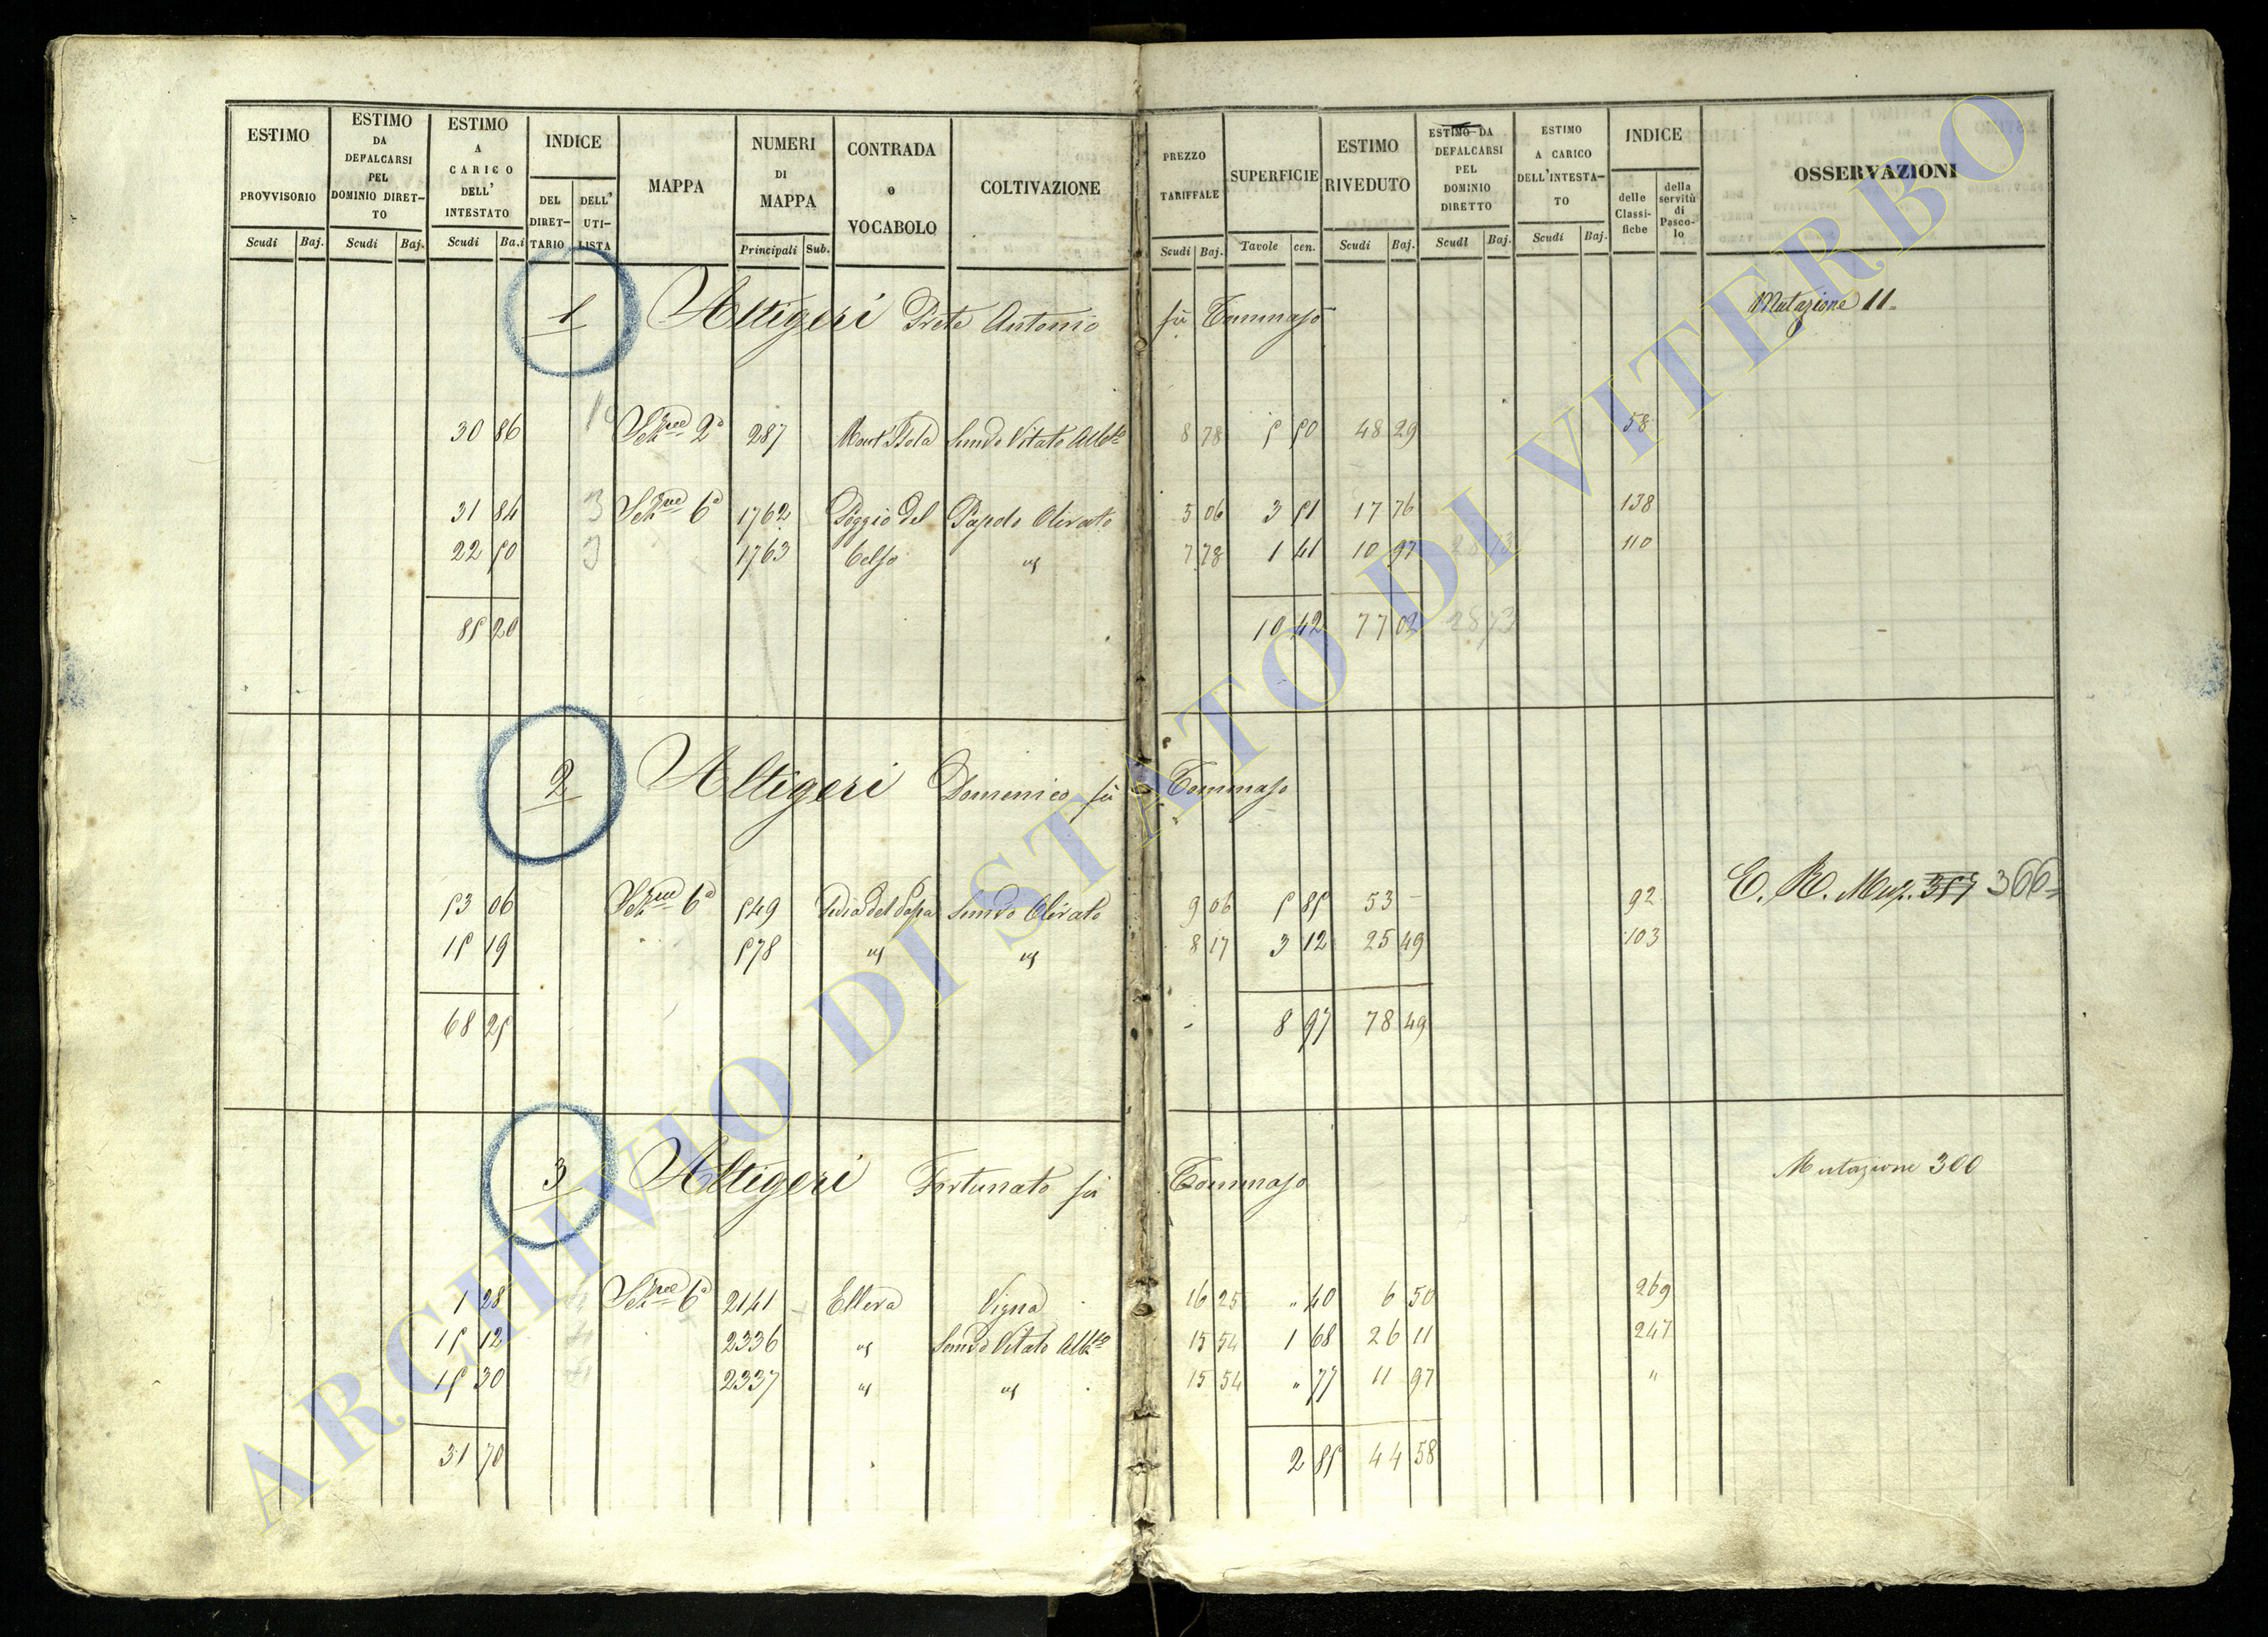 ESTIMO PROVVISORIO
ESTIMO DA DEFALCARSI PEL DOMINIO DIRET-TO
ESTIMO A CARICO DELL' INTESTATO
INDICE
DEL DIRET-TARIO
DELL' UTI-LISTA
MAPPA
NUMERI DI MAPPA
CONTRADA o VOCABOLO
COLTIVAZIONE
PREZZO TARIFFALE
SUPERFICIE
ESTIMO RIVEDUTO
ESTIMO DA DEFALCARSI PEL DOMINIO DIRETTO
ESTIMO A CARICO DELL'INTESTA-TO
INDICE
delle Classi-fiche
della servitù di Pasco-lo
OSSERVAZIONI
Scudi Baj. Scudi Baj. Scudi Ba.i Principali Sub. Scudi Baj. Tavole cen. Scudi Baj. Scudi Baj. Scudi Baj.
1 Altigeri Prete Antonio fù Tommaso Mutazione 11
30 86 Sezne 2a 287 Mont'Isola Semvo Vitato Albto 8 78 5 50 48 29 58
31 84 3 Sezne 6a 1762 Poggio del Papolo Olivato 5 06 3 51 17 76 138
22 50 3 1763 Celso " 7 78 1 41 10 97 28 73 110
85 20 10 42 77 02 28 73
2 Altigeri Domenico fù Tommaso
53 06 Sezne 6a 549 Sedia del Papa Semvo Olivato 9 06 5 85 53 - 92 C. R. Muz. 357 366
15 19 578 " " 8 17 3 12 25 49 103
68 25 8 97 78 49
3 Altigeri Fortunato fù Tommaso Mutazione 300
1 28 Sezne 6a 2141 Ellera Vigna 16 25 " 40 6 50 269
15 12 2336 " Semvo Vitato Albto 15 54 1 68 26 11 247
15 30 2337 " " 15 54 " 77 11 97 "
31 70 2 85 44 58
ARCHIVIO DI STATO DI VITERBO